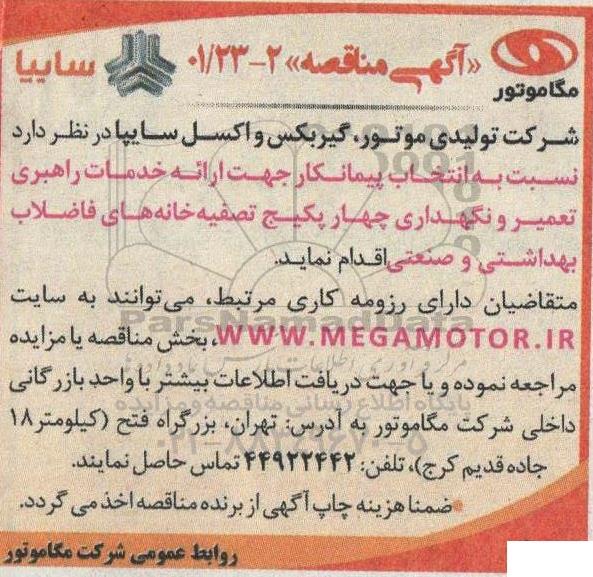 مگاموتور
«آگهی مناقصه» ۲-۰۱/۲۳
سایپا
شرکت تولیدی موتور، گیربکس و اکسل سایپا در نظر دارد
نسبت به انتخاب پیمانکار جهت ارائه خدمات راهبری
تعمیر و نگهداری چهار پکیج تصفیه خانه های فاضلاب
بهداشتی و صنعتی اقدام نماید.
متقاضیان دارای رزومه کاری مرتبط، می توانند به سایت
WWW.MEGAMOTOR.IR، بخش مناقصه یا مزایده
مراجعه نموده و یا جهت دریافت اطلاعات بیشتر با واحد بازرگانی
داخلی شرکت مگاموتور به آدرس: تهران، بزرگراه فتح (کیلومتر ۱۸
جاده قدیم کرج)، تلفن: ۴۴۹۲۲۴۴۲ تماس حاصل نمایند.
ضمنا هزینه چاپ آگهی از برنده مناقصه اخذ می گردد.
روابط عمومی شرکت مگاموتور
ParsNamadData
پایگاه اطلاع رسانی مناقصه و مزایده